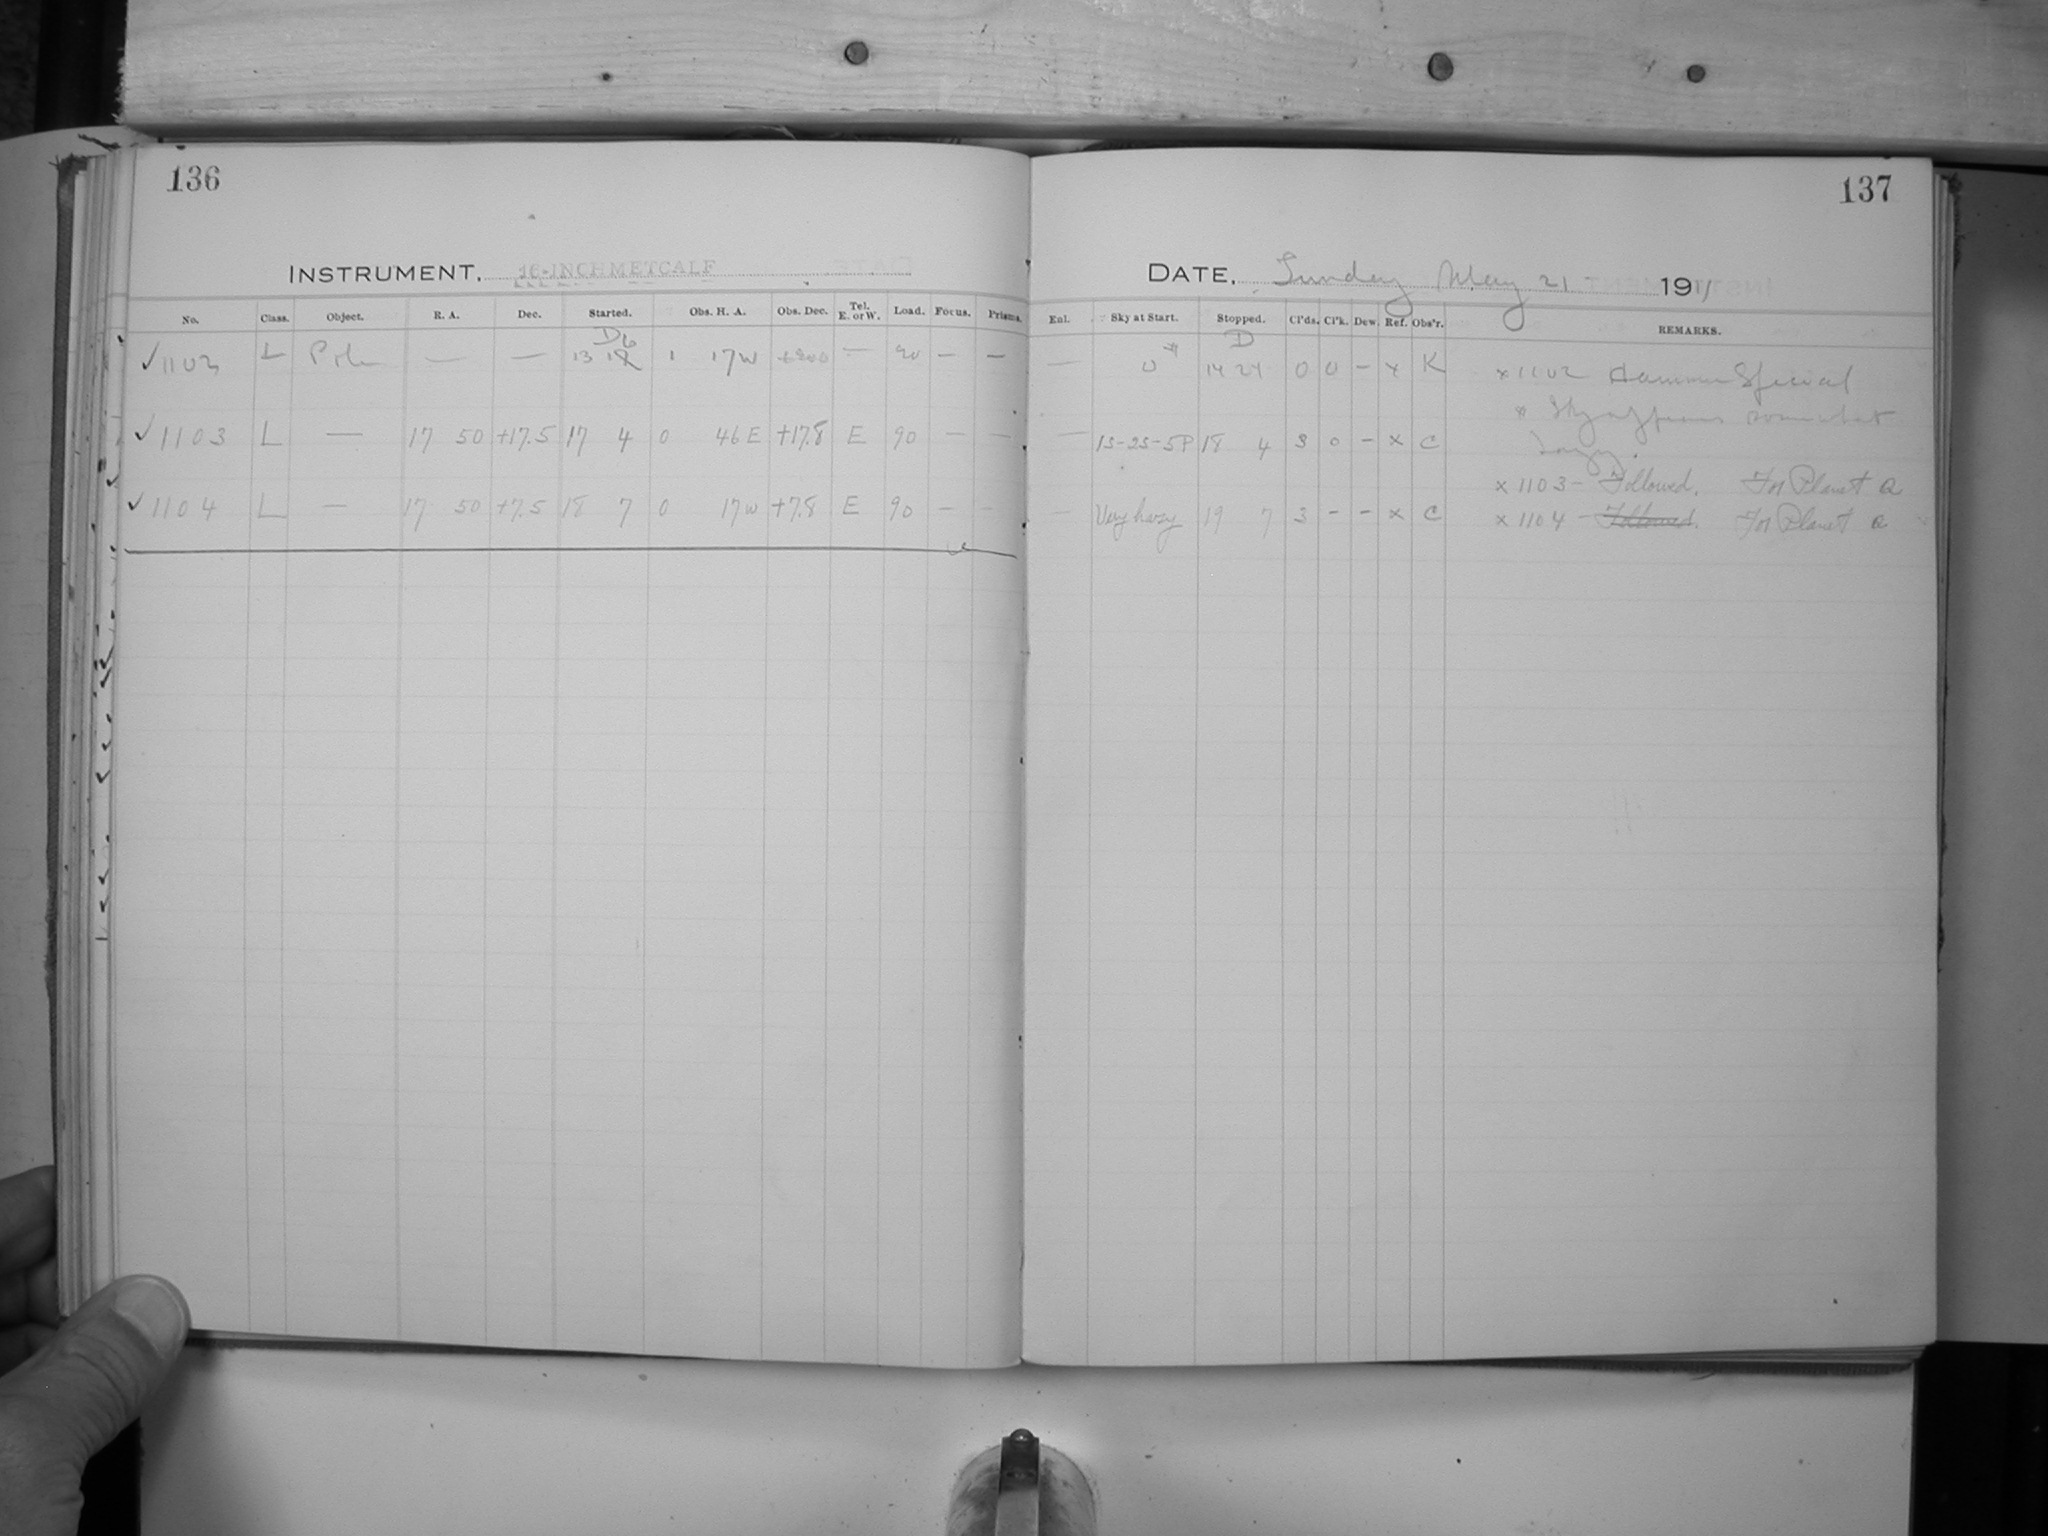 136
INSTRUMENT. 16-INCH METCALF
No. Class. Object. R. A. Dec. Started. Obs. H. A. Obs. Dec. Tel. E. or W. Load. Focus. Prisms.
✓1102 L Pole — — 13 1 17W — 90 — —
✓1103 L — 17 50 +17.5 17 4 0 46E +17.8 E 90 — —
✓1104 L — 17 50 +7.5 18 7 0 17W +7.8 E 90 — —
137
DATE. Sunday May 21 1911
Enl. Sky at Start. Stopped. Cl'ds. Cl'k. Dew. Ref. Obs'r. REMARKS.
D
— 0* 14 24 0 0 — x K x 1102 Special
* Sky appears somewhat
hazy.
— 15-25-5P 18 4 3 0 — x C
x 1103 – Followed. For Planet a
— Very hazy 19 7 3 — — x C x 1104 – Followed. For Planet a